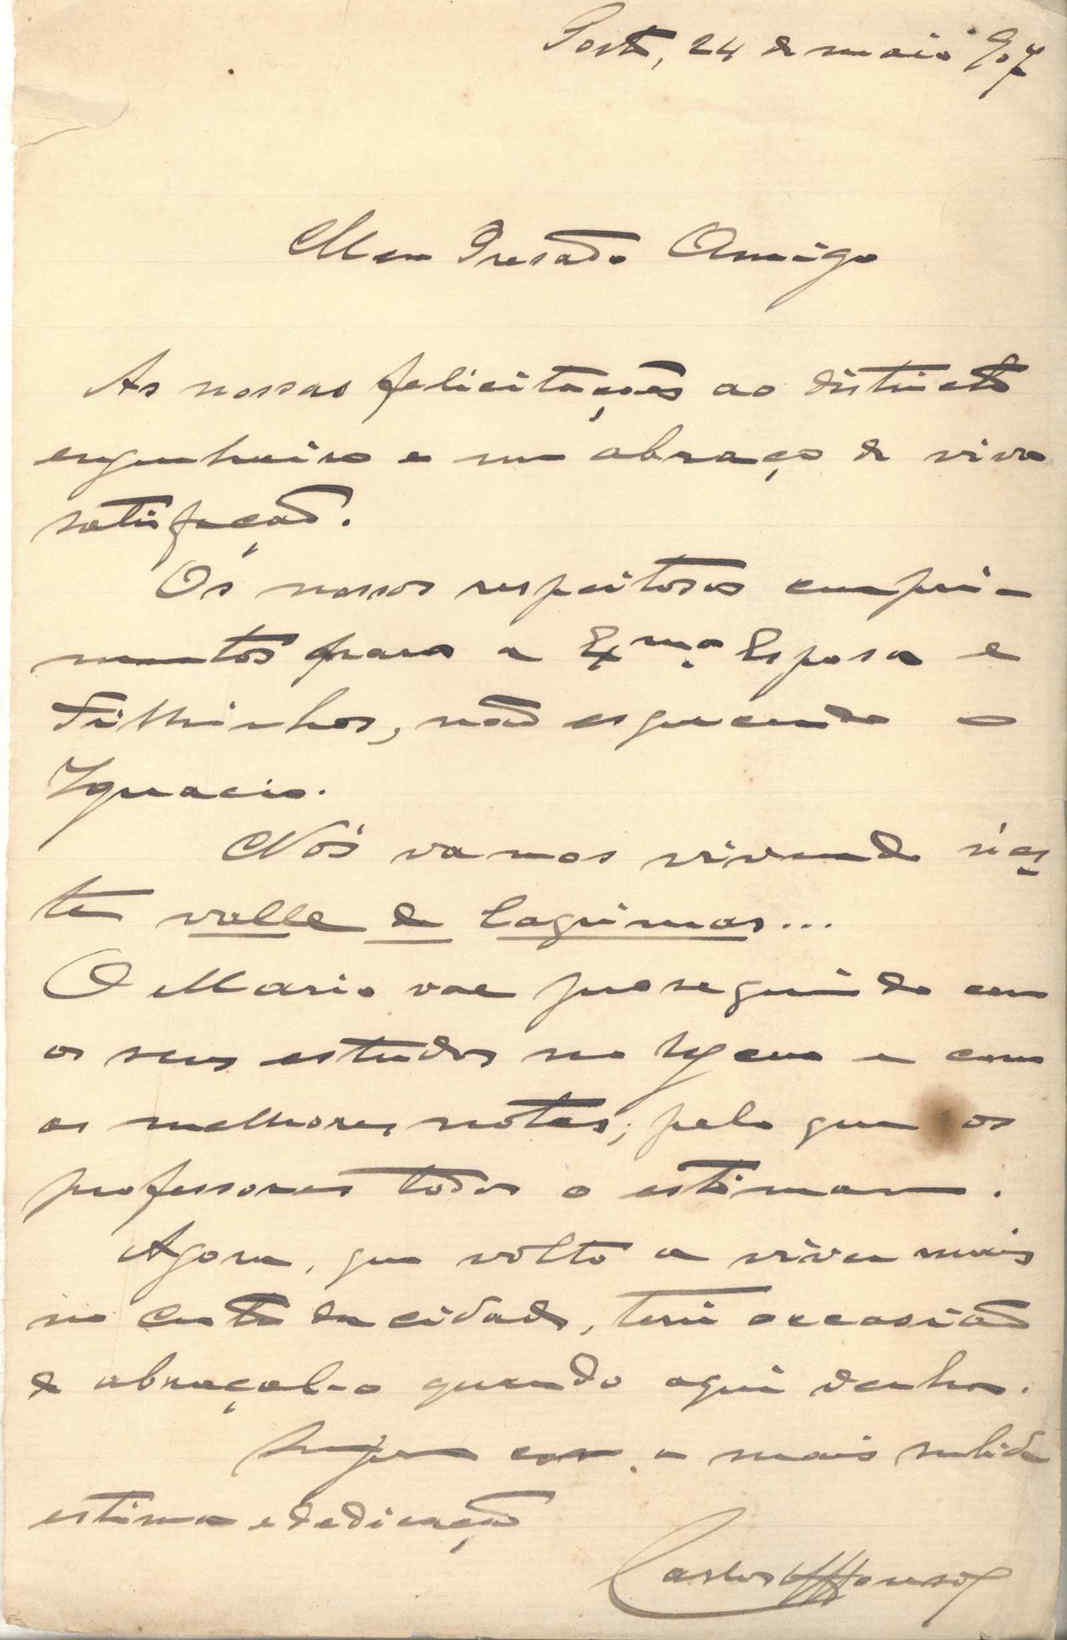 Porto, 24 de maio 907
Meu Presado Amigo
As nossas felicitações ao distincto
engenheiro e um abraço de viva
satisfação.
Os nossos respeitosos cumpri-
mentos para a Exma. Esposa e
Filhinhos, não esquecendo o
Ignacio.
Nós vamos vivendo n'es-
te valle de lagrimas...
O Mario vae proseguindo com
os seus estudos no Lyceu e com
as melhores notas, pelo que os
professores todos o estimam.
Agora, que volto a viver mais
no centro da cidade, terei occasião
de abraçal-o quando aqui venha.
Sempre com a mais subida
estima e dedicação
Carlos Affonso